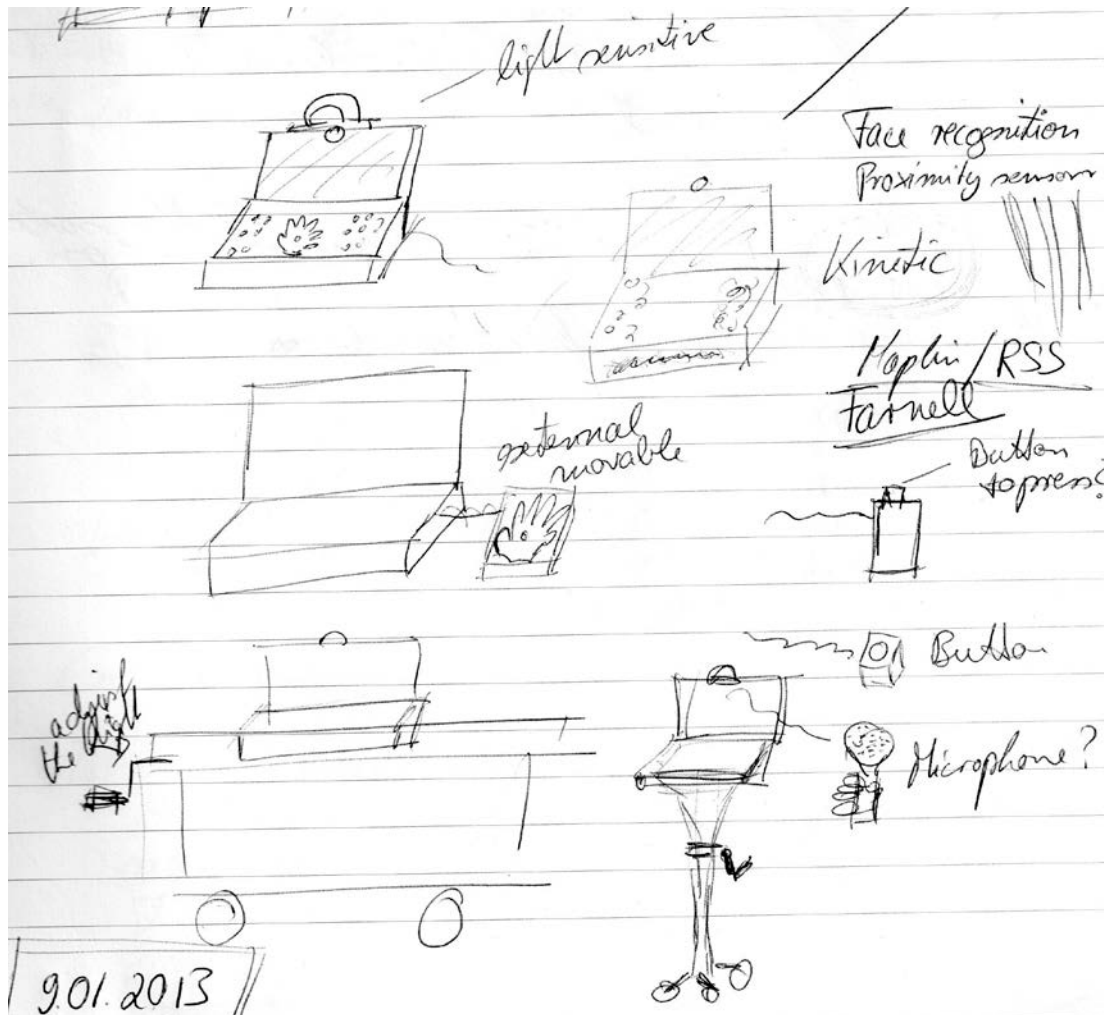 light sensitive
Face recognition
Proximity sensor
Kinetic
Maplin / RSS
Farnell
external
movable
Button
to press?
Button
adjust
the
Microphone?
9.01.2013